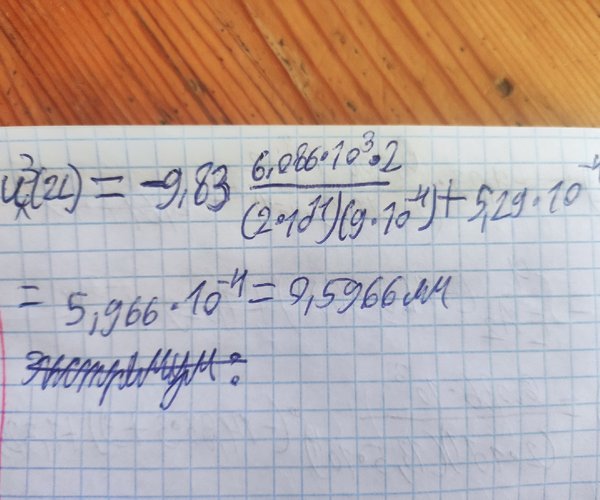 u_x^3(x) = -9,83 \frac{6,086·10^3·2}{(2·10^{11})(9·10^{-4})} + 5,29·10^{-4}
= 5,966·10^{-4} = 0,5966 мм
экстремум: